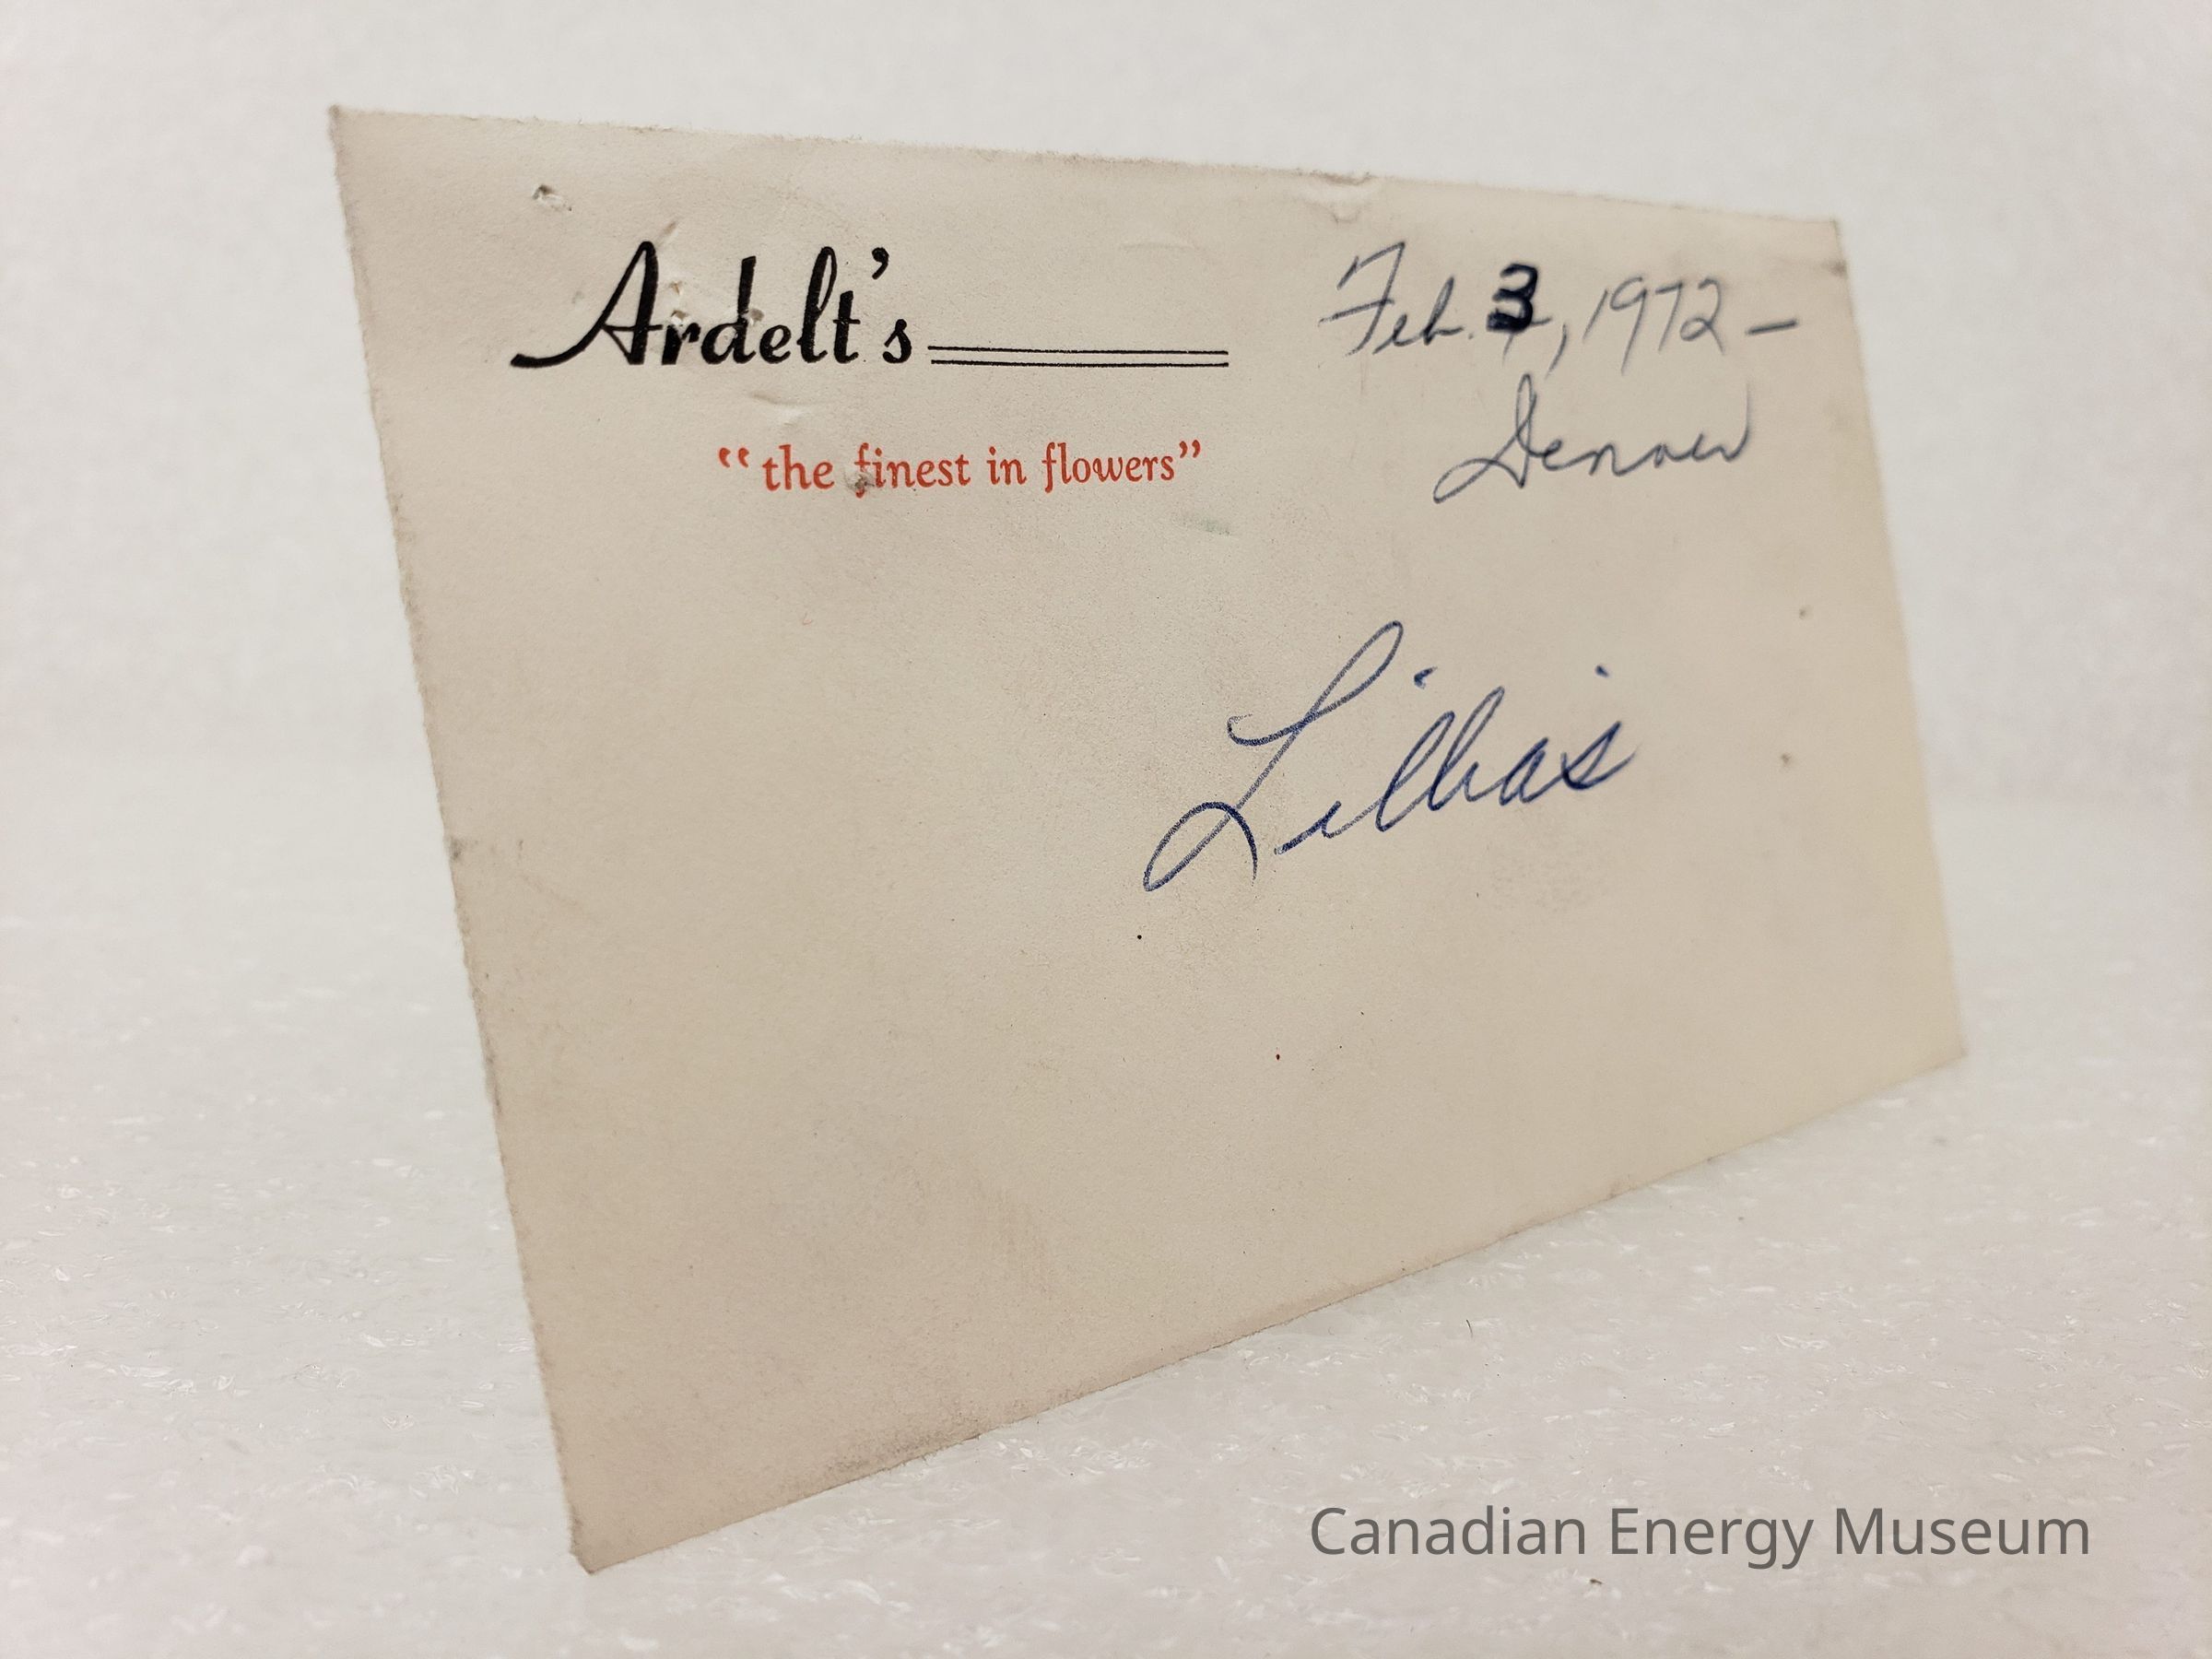 Ardelt's
"the finest in flowers"
Feb. 3, 1972 -
Denver
Lillias
Canadian Energy Museum